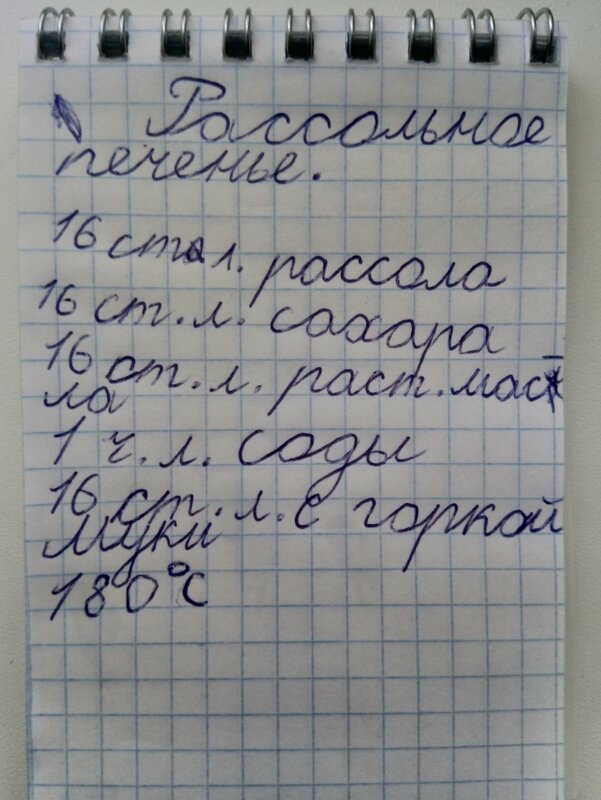 Рассольное
печенье.
16 ст.л. рассола
16 ст.л. сахара
16 ст.л. раст.мас-
ла
1 ч.л. соды
16 ст.л. с горкой
муки
180°C